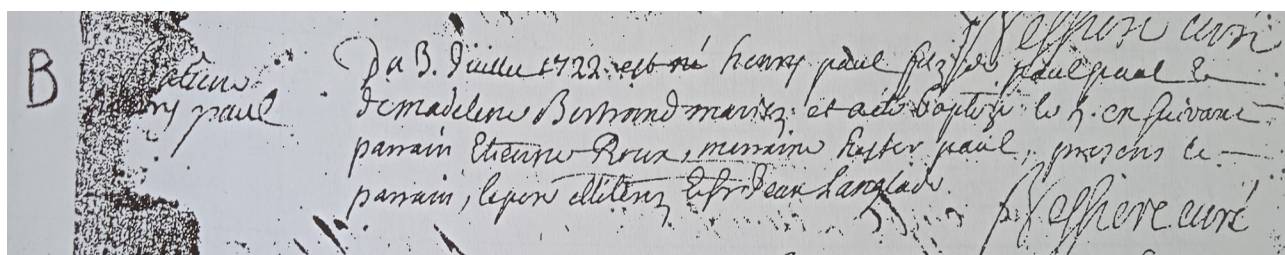 B
henry paul
Du 3. Juillet 1722 est né henry paul filz de paul paul &
de madelene Bertrand mariez et a été baptizé le 5. ensuivant
parrain Etienne Roux, marraine hester paul, presens le
parrain, le pere illiterez & sr Jean Langlade.
curé
curé